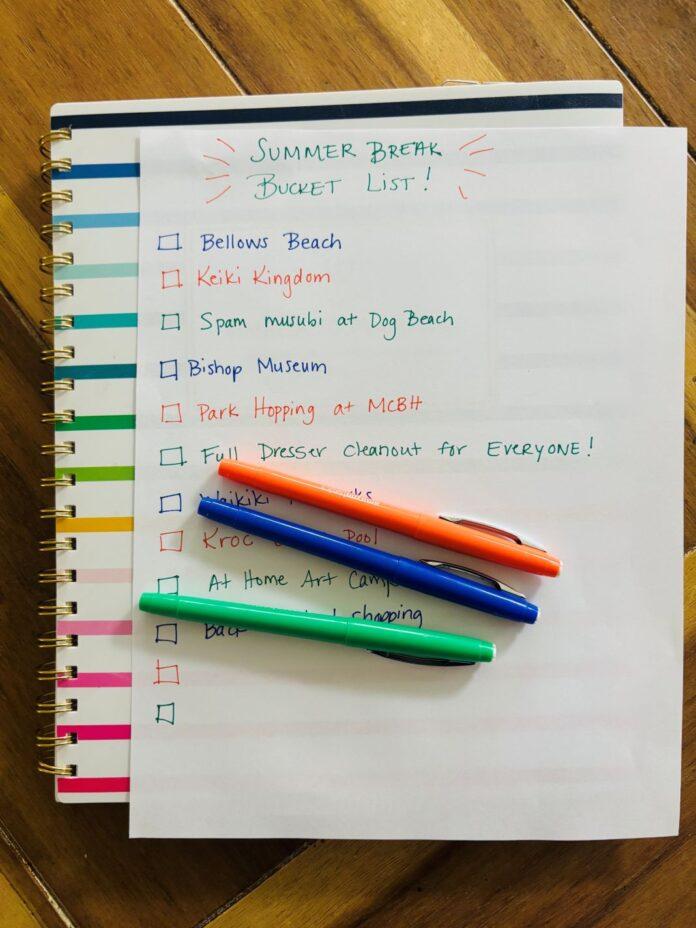 SUMMER BREAK
BUCKET LIST!
Bellows Beach
Keiki Kingdom
Spam musubi at Dog Beach
Bishop Museum
Park Hopping at MCBH
Full Dresser Cleanout for EVERYONE!
Waikiki
Kroc Pool
At Home Art Camp
shopping